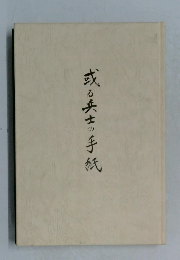 或る兵士の手紙